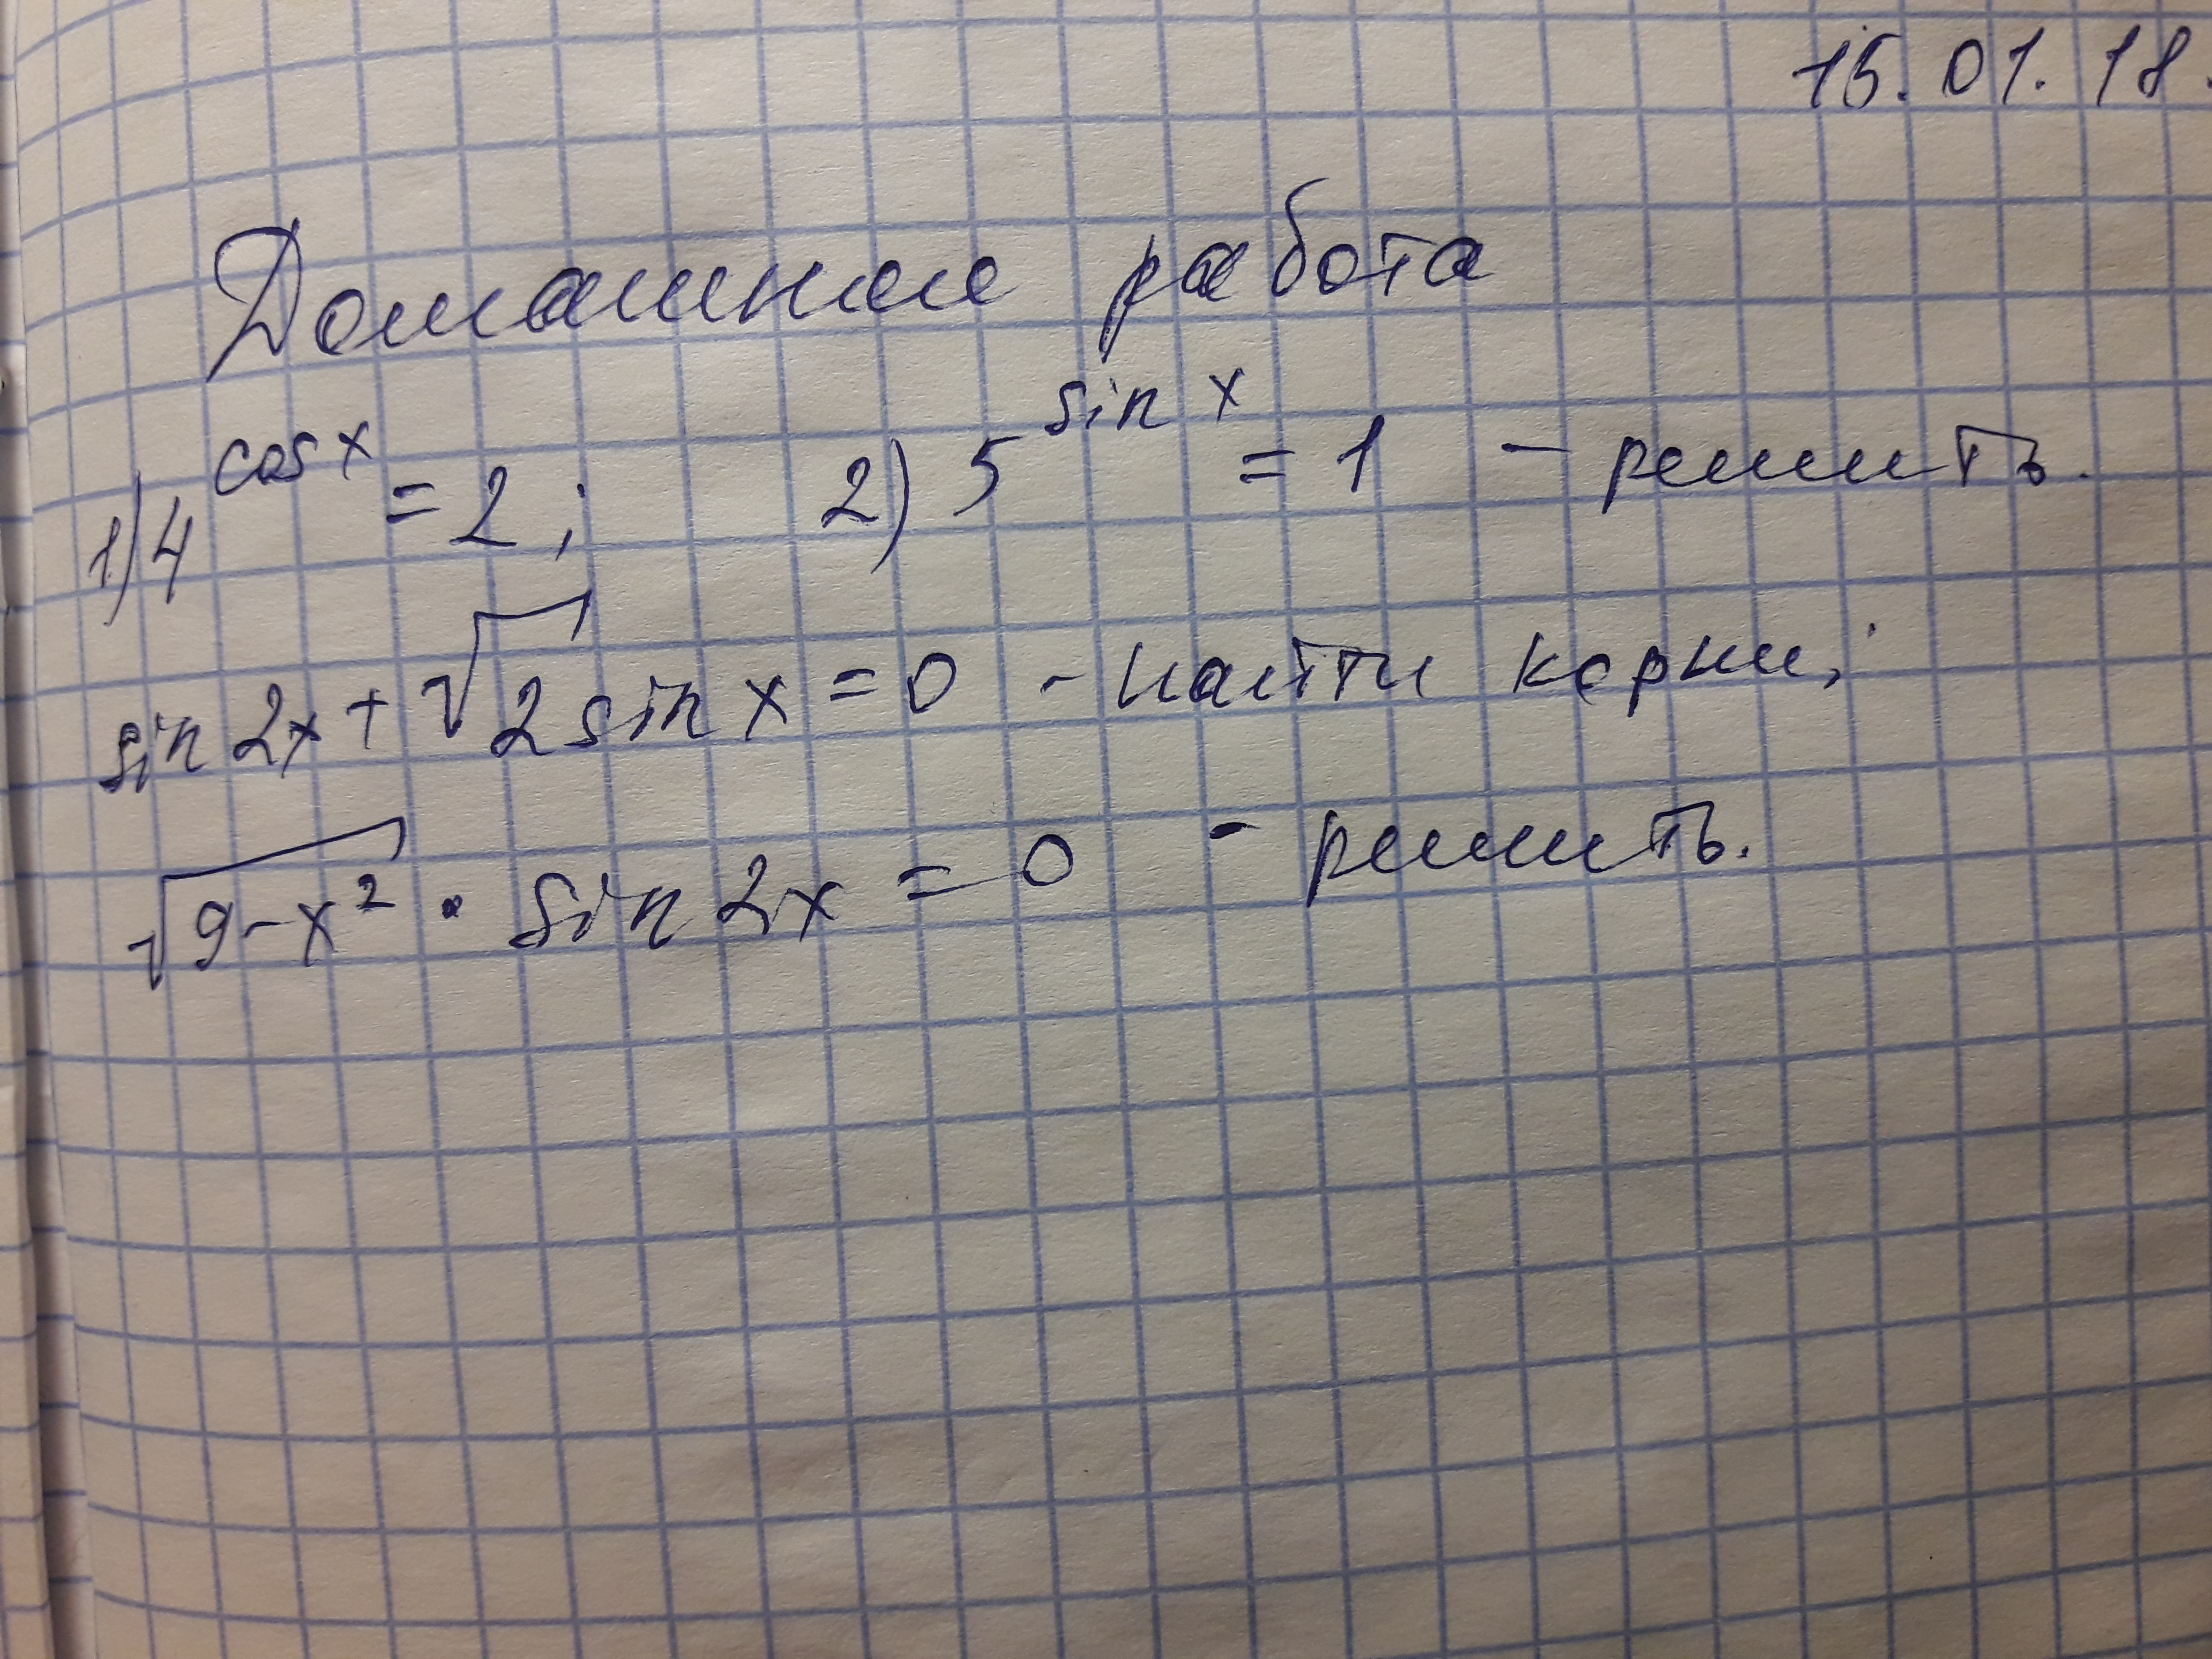 15.01.18.
Домашняя работа
1) 4^cos x = 2; 2) 5^sin x = 1 - решить.
sin 2x + √2 sin x = 0 - найти корни;
√(9-x²) · sin 2x = 0 - решить.